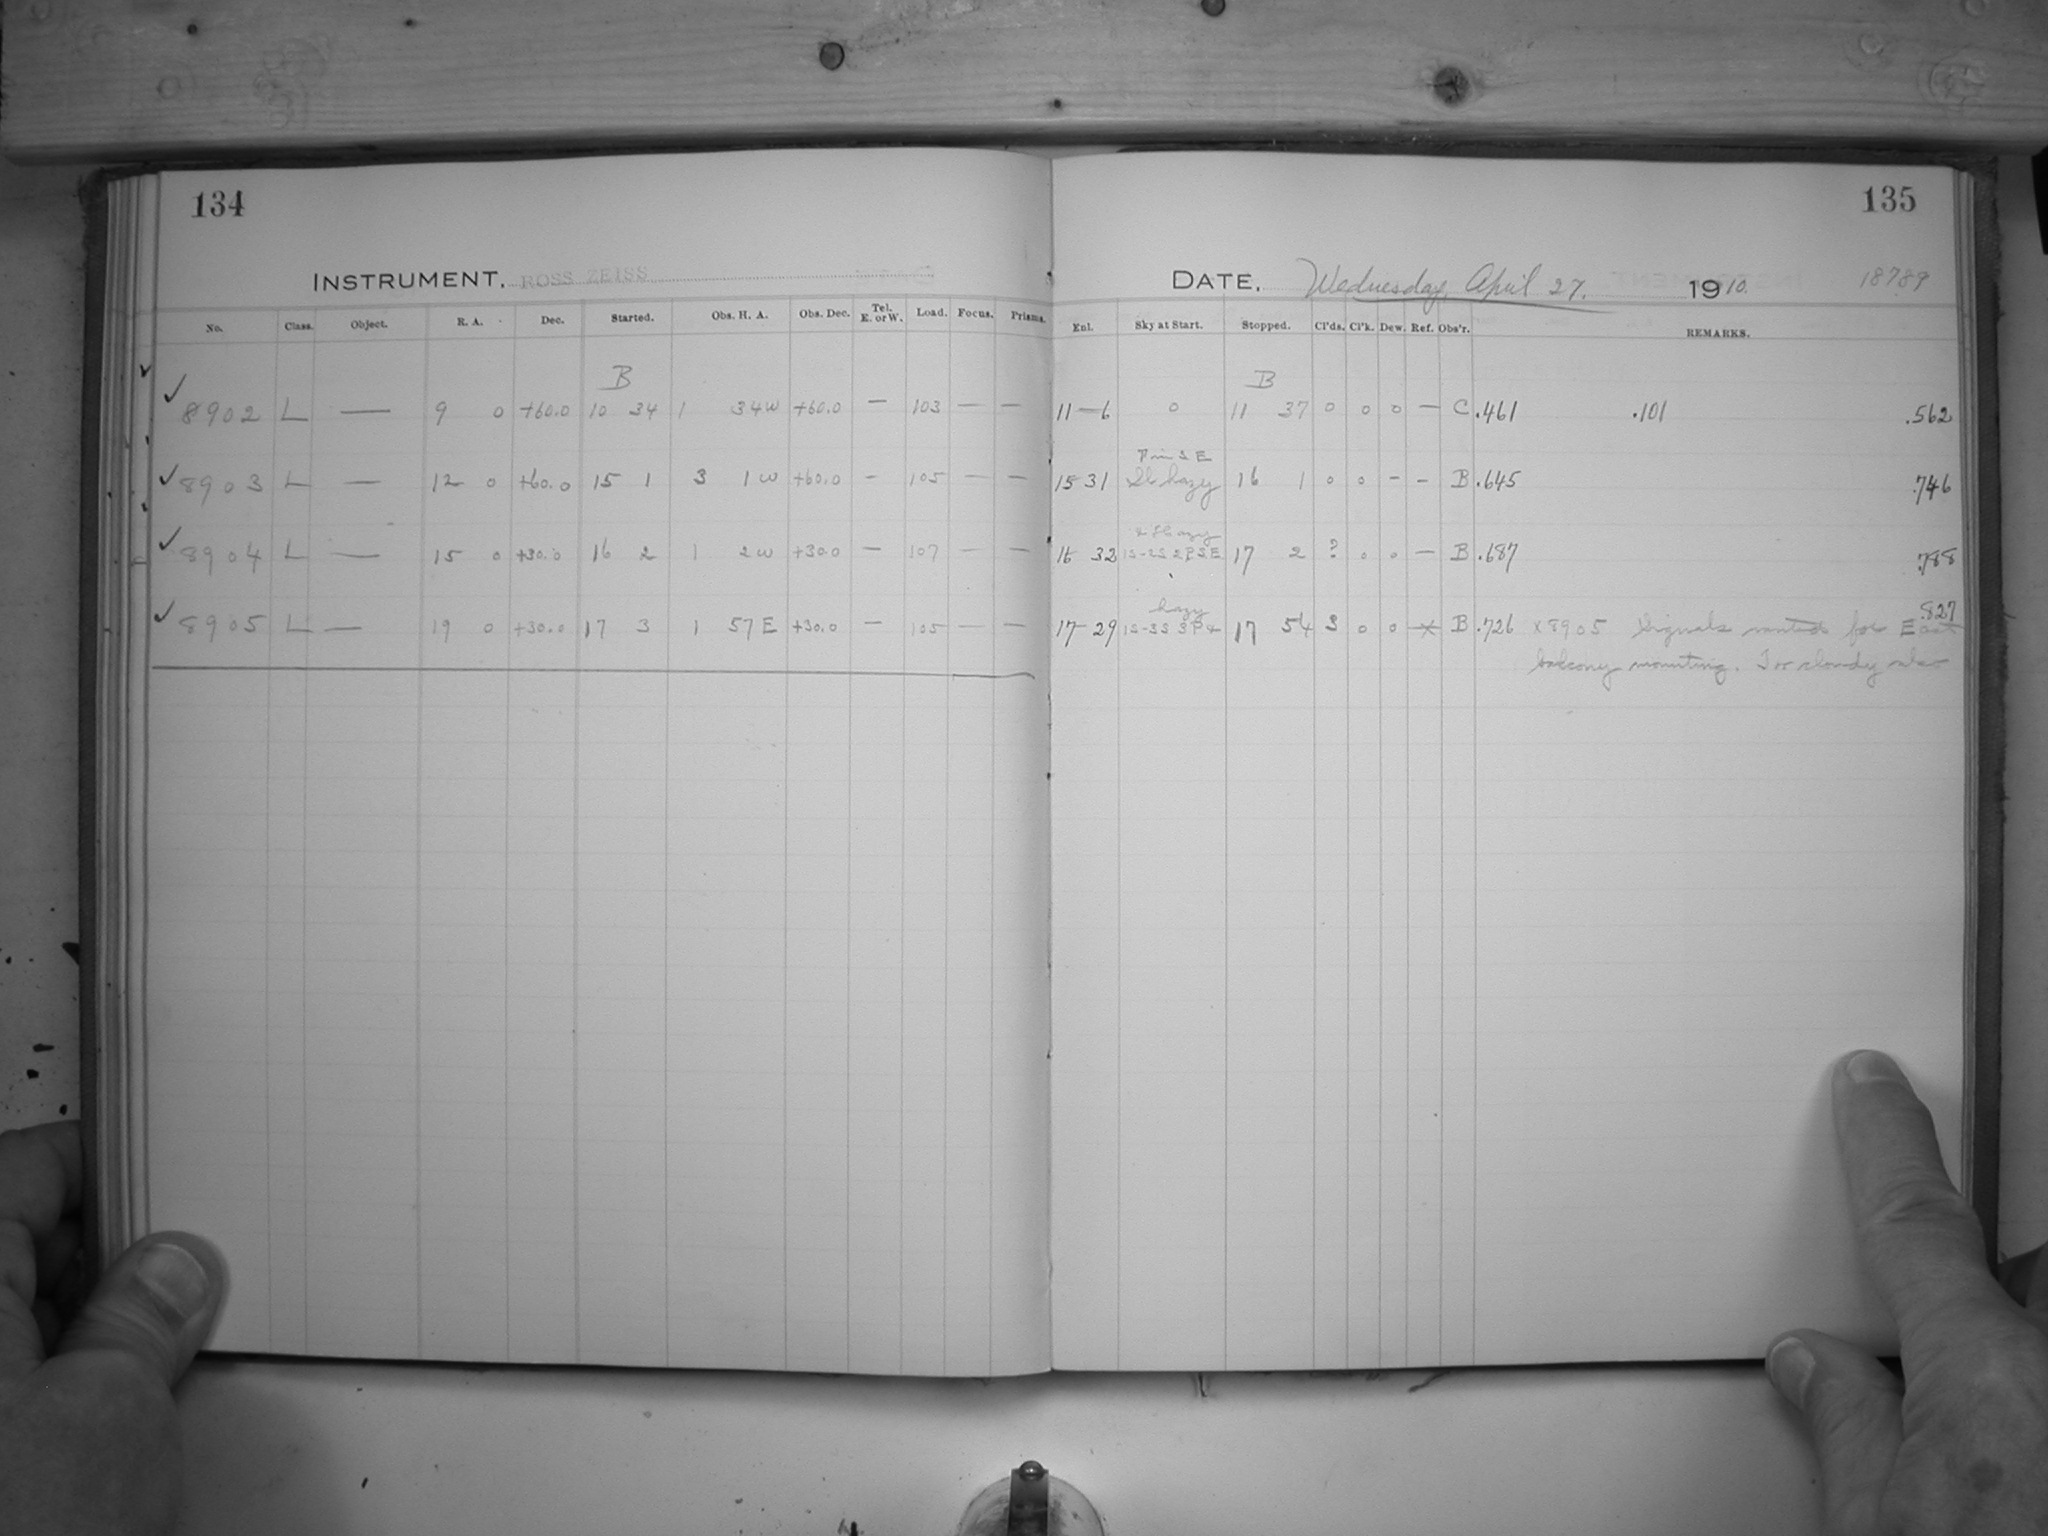 134
135
INSTRUMENT. ROSS ZEISS
DATE. Wednesday, April 27. 1910. 18789
No. Class. Object. R. A. Dec. Started. Obs. H. A. Obs. Dec. Tel. E. or W. Load. Focus. Prisms. Enl. Sky at Start. Stopped. Cl'ds. Cl'k. Dew. Ref. Obs'r. REMARKS.
B B
✓ 8902 L — 9 0 +60.0 10 34 1 34 W +60.0 — 103 — — 11 — 6 0 11 37 0 0 0 — C .461 .101 .562
S E
✓ 8903 L — 12 0 +60.0 15 1 3 1 W +60.0 — 105 — — 15 31 Sl hazy 16 1 0 0 – – B .645 .746
hazy
✓ 8904 L — 15 0 +30.0 16 2 1 2 W +30.0 — 107 — — 16 32 1S-2S 2 P S E 17 2 ? 0 0 — B .687 .788
hazy .827
✓ 8905 L — 19 0 +30.0 17 3 1 57 E +30.0 — 105 — — 17 29 1S-3S 3 P 4 17 54 3 0 0 x B .726 x 8905 Signals wanted for East
balcony mounting. Too cloudy also